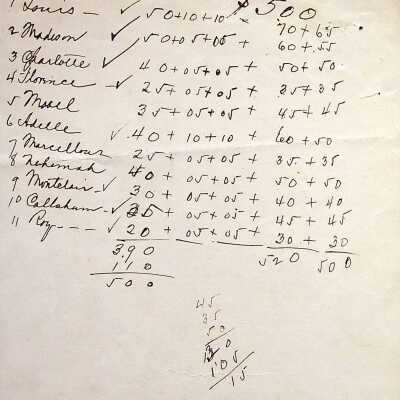 1 Louis — ✓ 50+10+10 — $500
70+65
2 Madison ✓ 50+05+05 + 60+.55
3 Charlotte ✓ 40+05+05 + 50+50
4 Florence ✓ 25+05+05 + 35+35
5 Mabel 35+05+05 + 45+45
6 Adelle ✓ 40+10+10 + 60+50
7 Marcellous 25+05+05 + 35+35
8 Nehemiah 40+05+05 + 50+50
9 Montclair ✓ 30+05+05 + 40+40
10 Callaham ✓ 35+05+05 + 45+45
11 Roy ---- ✓ 20+05+05+ 30+30
390 520 500
110
500
45
35
50
105
15